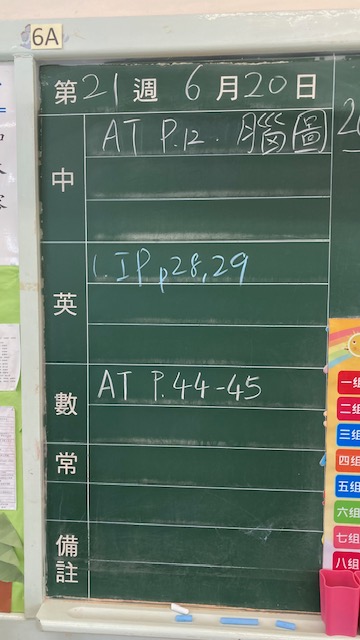 6A
第21週 6月20日
中 AT P.12. 腦圖
英 1. IP p28,29
數 AT P.44-45
常
備註
一組
二組
三組
四組
五組
六組
七組
八組